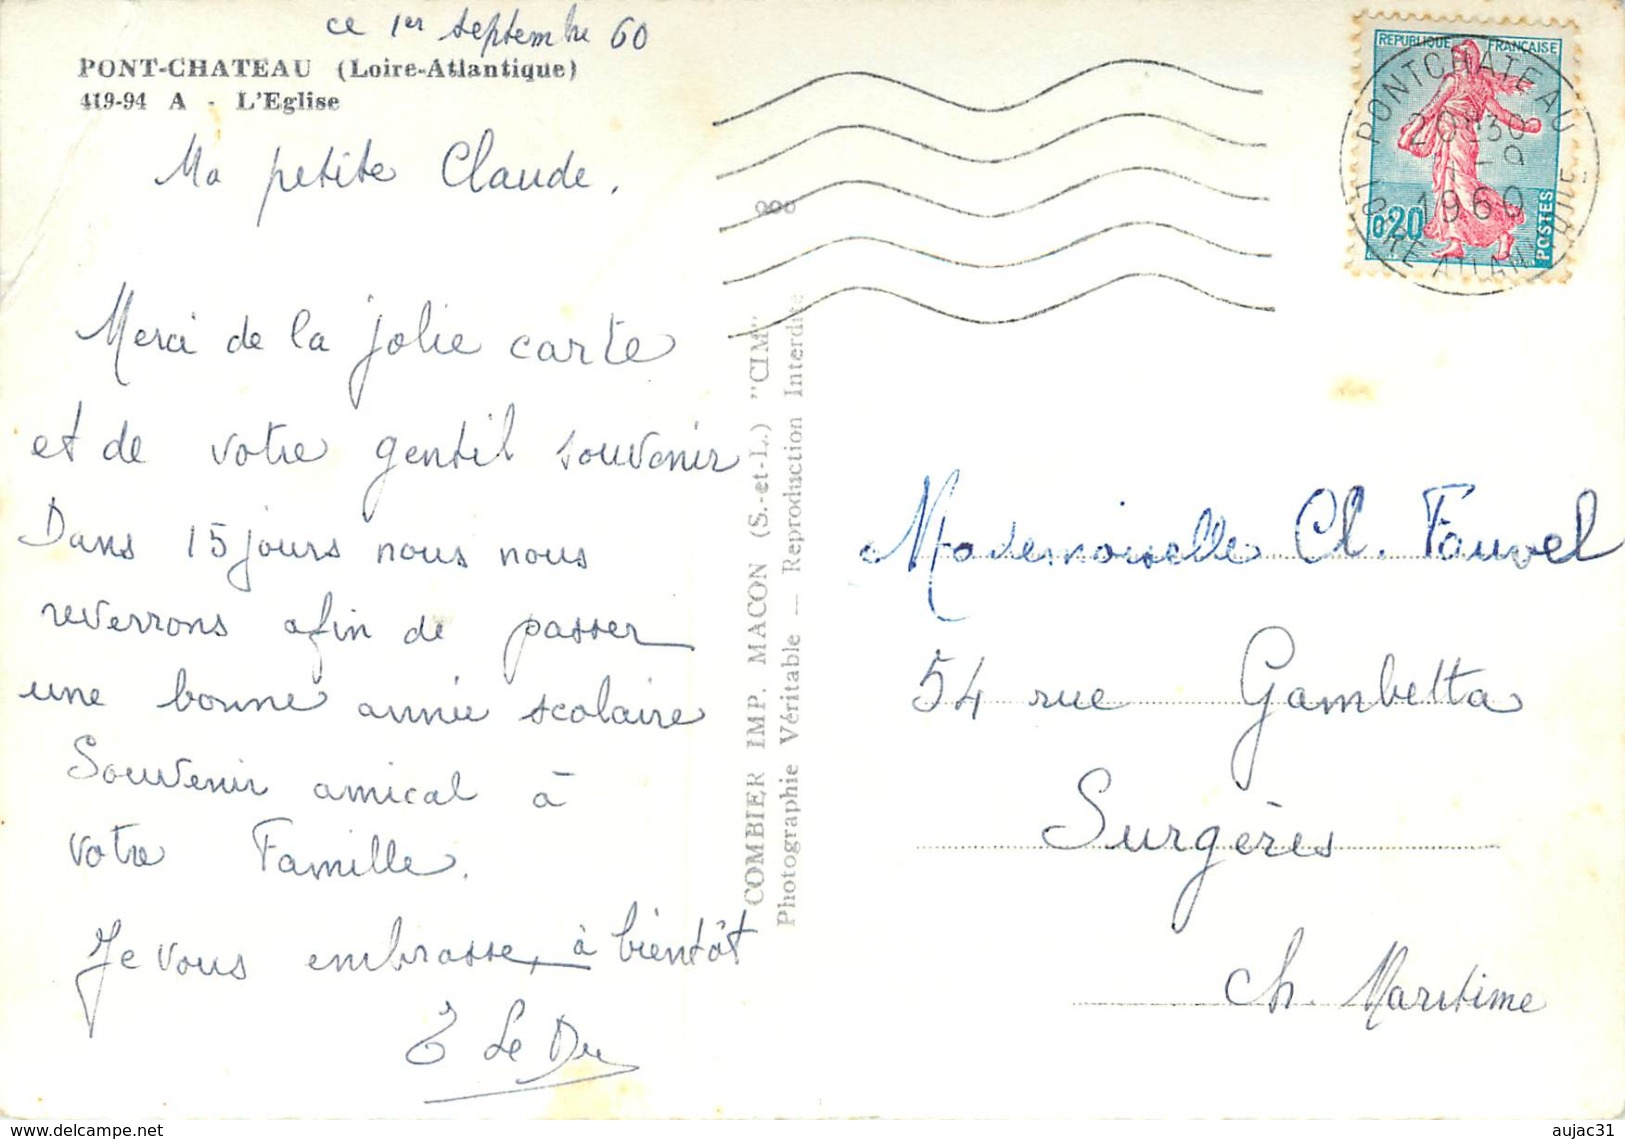 ce 1er septembre 60
PONT-CHATEAU (Loire-Atlantique)
419-94 A - L'Eglise
Ma petite Claude.
Merci de la jolie carte
et de votre gentil souvenir
Dans 15 jours nous nous
reverrons afin de passer
une bonne année scolaire
Souvenir amical à
votre Famille.
Je vous embrasse, à bientôt
Le Du
COMBIER IMP. MACON (S.-et-L.) "CIM"
Photographie Véritable — Reproduction Interdite
REPUBLIQUE FRANÇAISE
0,20
POSTES
PONTCHATEAU
20H30
1-9
1960
LOIRE ATLANTIQUE
Mademoiselle Cl. Fauvel
54 rue Gambetta
Surgères
Ch. Maritime
delcampe.net
aujac31